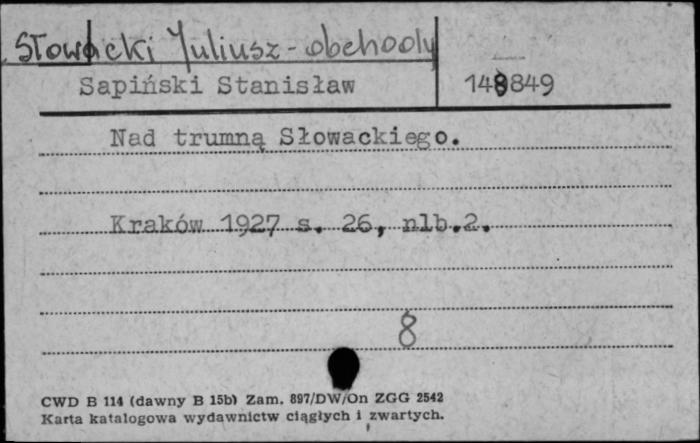 Słowacki Juliusz - obchody
Sapiński Stanisław 148849
Nad trumną Słowackiego.
Kraków 1927 s. 26, nlb.2.
8
CWD B 114 (dawny B 15b) Zam. 897/DW/On ZGG 2542
Karta katalogowa wydawnictw ciągłych i zwartych.